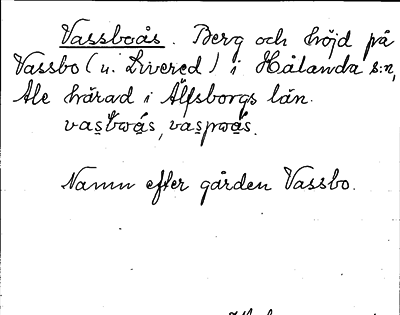 Vassboås. Berg och höjd på
Vassbo (u. Livered) i Hålanda s:n,
Ale härad i Älfsborgs län.
Namn efter gården Vassbo.